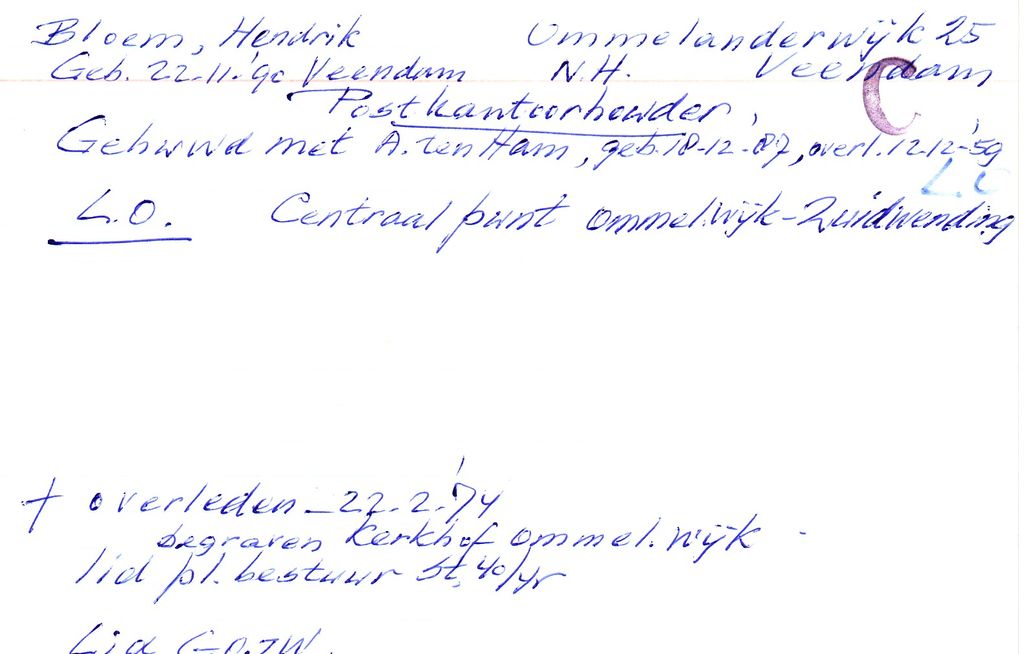 Bloem, Hendrik Ommelanderwijk 25
Geb. 22-11-'90 Veendam N.H. Veendam
C
Postkantoorhouder,
Gehuwd met A. ten Ham, geb. 18-12-'87, overl. 12-12-'59
L.O. Centraal punt Ommel.wijk-Zuidwending
+ overleden - 22-2-'74
begraven Kerkhof Ommel.wijk
lid pl. bestuur St. 40/45
Lid